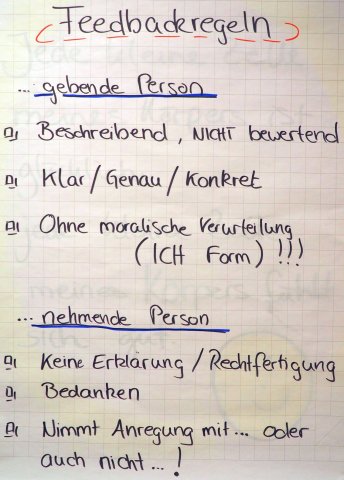 Feedbackregeln
... gebende Person
Beschreibend, NICHT bewertend
Klar / Genau / Konkret
Ohne moralische Verurteilung
(ICH Form) !!!
... nehmende Person
Keine Erklärung / Rechtfertigung
Bedanken
Nimmt Anregung mit... oder
auch nicht... !